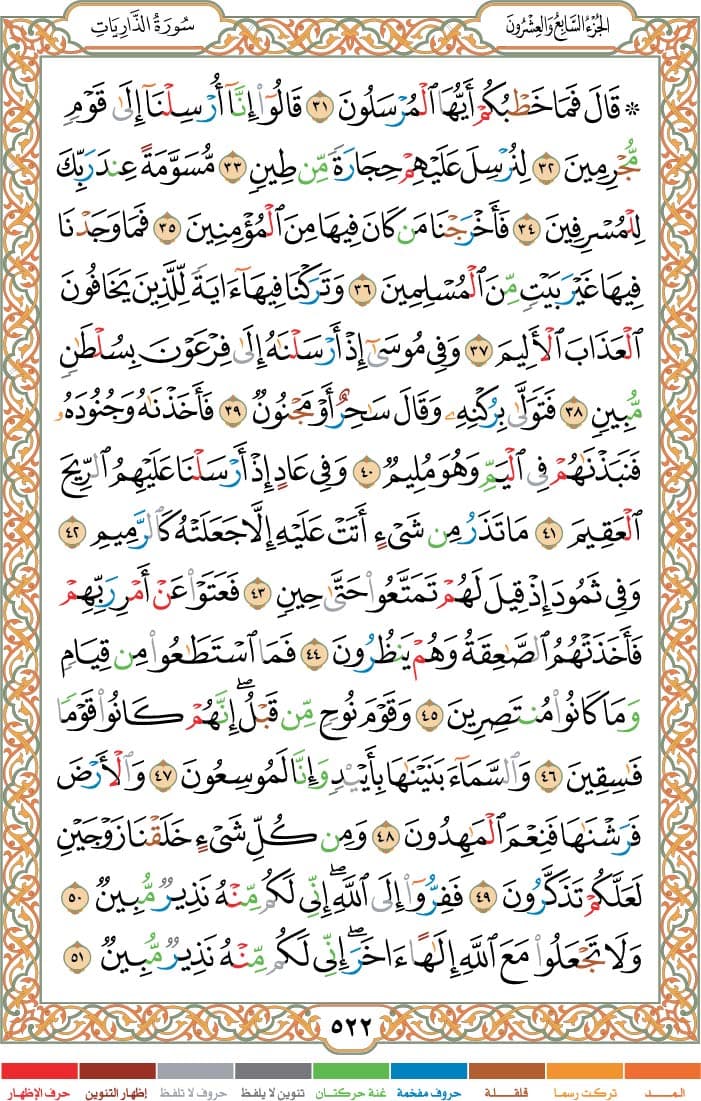 الجُزْءُ السَّابِعُ وَالعِشْرُونَ
سُورَةُ الذَّارِيَاتِ
۞ قَالَ فَمَا خَطۡبُكُمۡ أَيُّهَا ٱلۡمُرۡسَلُونَ ٣١ قَالُوٓاْ إِنَّآ أُرۡسِلۡنَآ إِلَىٰ قَوۡمٖ
مُّجۡرِمِينَ ٣٢ لِنُرۡسِلَ عَلَيۡهِمۡ حِجَارَةٗ مِّن طِينٖ ٣٣ مُّسَوَّمَةً عِندَ رَبِّكَ
لِلۡمُسۡرِفِينَ ٣٤ فَأَخۡرَجۡنَا مَن كَانَ فِيهَا مِنَ ٱلۡمُؤۡمِنِينَ ٣٥ فَمَا وَجَدۡنَا
فِيهَا غَيۡرَ بَيۡتٖ مِّنَ ٱلۡمُسۡلِمِينَ ٣٦ وَتَرَكۡنَا فِيهَآ ءَايَةٗ لِّلَّذِينَ يَخَافُونَ
ٱلۡعَذَابَ ٱلۡأَلِيمَ ٣٧ وَفِي مُوسَىٰٓ إِذۡ أَرۡسَلۡنَٰهُ إِلَىٰ فِرۡعَوۡنَ بِسُلۡطَٰنٖ
مُّبِينٖ ٣٨ فَتَوَلَّىٰ بِرُكۡنِهِۦ وَقَالَ سَٰحِرٌ أَوۡ مَجۡنُونٞ ٣٩ فَأَخَذۡنَٰهُ وَجُنُودَهُۥ
فَنَبَذۡنَٰهُمۡ فِي ٱلۡيَمِّ وَهُوَ مُلِيمٞ ٤٠ وَفِي عَادٍ إِذۡ أَرۡسَلۡنَا عَلَيۡهِمُ ٱلرِّيحَ
ٱلۡعَقِيمَ ٤١ مَا تَذَرُ مِن شَيۡءٍ أَتَتۡ عَلَيۡهِ إِلَّا جَعَلَتۡهُ كَٱلرَّمِيمِ ٤٢
وَفِي ثَمُودَ إِذۡ قِيلَ لَهُمۡ تَمَتَّعُواْ حَتَّىٰ حِينٖ ٤٣ فَعَتَوۡاْ عَنۡ أَمۡرِ رَبِّهِمۡ
فَأَخَذَتۡهُمُ ٱلصَّٰعِقَةُ وَهُمۡ يَنظُرُونَ ٤٤ فَمَا ٱسۡتَطَٰعُواْ مِن قِيَامٖ
وَمَا كَانُواْ مُنتَصِرِينَ ٤٥ وَقَوۡمَ نُوحٖ مِّن قَبۡلُۖ إِنَّهُمۡ كَانُواْ قَوۡمٗا
فَٰسِقِينَ ٤٦ وَٱلسَّمَآءَ بَنَيۡنَٰهَا بِأَيۡيْدٖ وَإِنَّا لَمُوسِعُونَ ٤٧ وَٱلۡأَرۡضَ
فَرَشۡنَٰهَا فَنِعۡمَ ٱلۡمَٰهِدُونَ ٤٨ وَمِن كُلِّ شَيۡءٍ خَلَقۡنَا زَوۡجَيۡنِ
لَعَلَّكُمۡ تَذَكَّرُونَ ٤٩ فَفِرُّوٓاْ إِلَى ٱللَّهِۖ إِنِّي لَكُم مِّنۡهُ نَذِيرٞ مُّبِينٞ ٥٠
وَلَا تَجۡعَلُواْ مَعَ ٱللَّهِ إِلَٰهًا ءَاخَرَۖ إِنِّي لَكُم مِّنۡهُ نَذِيرٞ مُّبِينٞ ٥١
٥٢٢
المـــد تركت رسما قلقلة حروف مفخمة غنة حركتان تنوين لا يلفظ حروف لا تلفظ إظهار التنوين حرف الإظهار